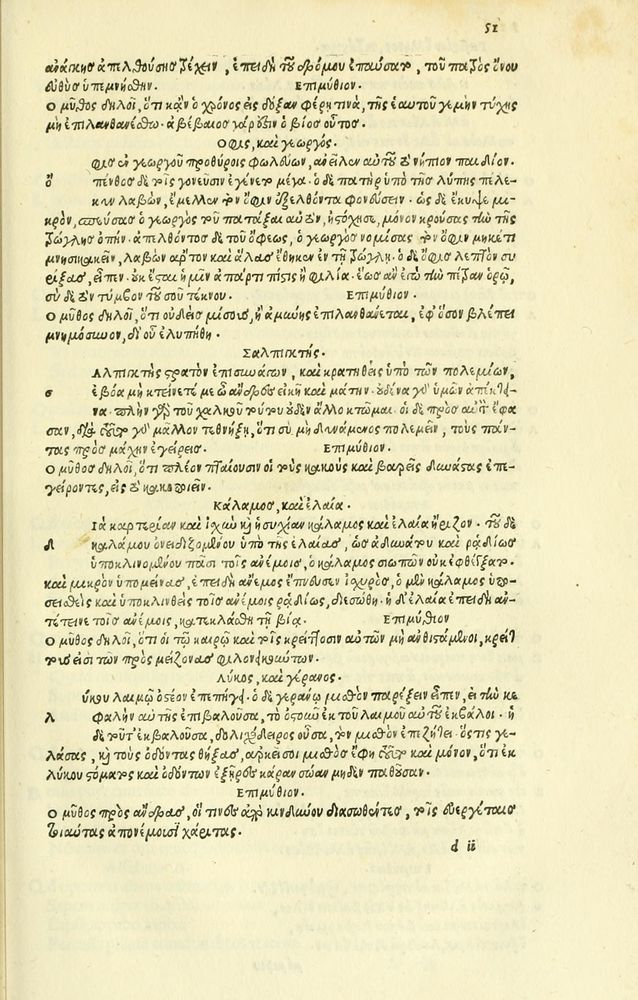 51
ἀνάγκης ἀπελθούσης τρέχειν, ἐπειδὴ τοῦ δρόμου ἐπαύσατο, τοῦ πατρὸς ὄνου
εὐθὺς ὑπεμνήσθην. Επιμύθιον.
Ο μῦθος δηλοῖ, ὅτι κἂν ὁ χρόνος εἰς δόξαν φέρῃ τινὰ, τῆς ἑαυτοῦ γε μὴν τύχης
μὴ ἐπιλανθανέσθω. ἀβέβαιος γάρ ἐστιν ὁ βίος οὗτος.
Οφις, καὶ γεωργός.
φις ἐν γεωργοῦ προθύροις φωλεύων, ἀνεῖλεν αὐτοῦ τὸ νήπιον παιδίον.
ὄ πένθος δὲ τοῖς γονεῦσιν ἐγένετο μέγα. ὁ δὲ πατὴρ ὑπὸ τῆς λύπης πέλε-
κυν λαβὼν, ἔμελλεν τὸν ὄφιν ἐξελθόντα φονεύσειν. ὡς δὲ ἔκυψε μι-
κρὸν, σπεύσας ὁ γεωργὸς τοῦ πατάξαι αὐτὸν, ἠστόχησε, μόνον κρούσας τὴν τῆς
τρώγλης ὀπήν. ἀπελθόντος δὲ τοῦ ὄφεως, ὁ γεωργὸς νομίσας τὸν ὄφιν μηκέτι
μνησικακεῖν, λαβὼν ἄρτον καὶ ἅλας ἔθηκεν ἐν τῇ τρώγλῃ. ὁ δὲ ὄφις λεπτὸν συ
ρίξας, εἶπεν. οὐκ ἔσται ἡμῖν ἀπάρτι πίστις ἢ φιλία. ἕως ἂν ἐγὼ τὴν πέτραν ὁρῶ,
σὺ δὲ τὸν τύμβον τοῦ σοῦ τέκνου. Επιμύθιον.
Ο μῦθος δηλοῖ, ὅτι οὐδεὶς μίσους, ἢ ἀμύνης ἐπιλανθάνεται, ἐφ' ὅσον βλέπει
μνημόσυνον, δι' οὗ ἐλυπήθη.
Σαλπιγκτής.
Αλπιγκτὴς στρατὸν ἐπισυνάγων, καὶ κρατηθεὶς ὑπὸ τῶν πολεμίων,
σ ἐβόα μὴ κτείνετέ με ὦ ἄνδρες εἰκῆ καὶ μάτην. οὐδένα γὰρ ὑμῶν ἀπέκτει-
να. πλὴν γὰρ τοῦ χαλκοῦ τούτου οὐδὲν ἄλλο κτῶμαι. οἱ δὲ πρὸς αὐτὸν ἔφα
σαν, διὰ τοῦτο γὰρ μᾶλλον τεθνήξῃ, ὅτι σὺ μὴ δυνάμενος πολεμεῖν, τοὺς πάν-
τας πρὸς μάχην ἐγείρεις. Επιμύθιον.
Ο μῦθος δηλοῖ, ὅτι πλέον πταίουσιν οἱ τοὺς κακοὺς καὶ βαρεῖς δυνάστας ἐπε-
γείροντες, εἰς τὸ κακοποιεῖν.
Κάλαμος, καὶ ἐλαία.
Ιὰ καρτερίαν καὶ ἰσχὺν καὶ ἡσυχίαν κάλαμος καὶ ἐλαία ἤριζον. τοῦ δὲ
Δ καλάμου ὀνειδιζομένου ὑπὸ τῆς ἐλαίας, ὡς ἀδυνάτου καὶ ῥᾳδίως
ὑποκλινομένου πᾶσι τοῖς ἀνέμοις, ὁ κάλαμος σιωπῶν οὐκ ἐφθέγξατο.
καὶ μικρὸν ὑπομείνας, ἐπειδὴ ἄνεμος ἔπνευσεν ἰσχυρὸς, ὁ μὲν κάλαμος ὑπο-
σεισθεὶς καὶ ὑποκλινθεὶς τοῖς ἀνέμοις ῥᾳδίως, διεσώθη. ἡ δ' ἐλαία ἐπειδὴ ἀν-
τέτεινε τοῖς ἀνέμοις, κατεκλάσθη τῇ βίᾳ. Επιμύθιον
Ο μῦθος δηλοῖ, ὅτι οἱ τῷ καιρῷ καὶ τοῖς κρείττοσιν αὐτῶν μὴ ἀνθιστάμενοι, κρείτ
τους εἰσὶ τῶν πρὸς μείζονας φιλονεικούντων.
Λύκος, καὶ γέρανος.
ύκου λαιμῷ ὀστέον ἐπεπήγει. ὁ δὲ γεράνῳ μισθὸν παρέξειν εἶπεν, εἰ τὴν κε
λ φαλὴν αὐτῆς ἐπιβαλοῦσα, τὸ ὀστοῦν ἐκ τοῦ λαιμοῦ αὐτοῦ ἐκβάλοι. ἡ
δὲ τοῦτ' ἐκβαλοῦσα, δολιχόδειρος οὖσα, τὸν μισθὸν ἐπεζήτει. ὅστις γε-
λάσας, καὶ τοὺς ὀδόντας θήξας, ἀρκεῖ σοι μισθὸς ἔφη τοῦτο καὶ μόνον, ὅτι ἐκ
λύκου στόματος καὶ ὀδόντων ἐξῆρες κάραν σῶαν μηδὲν παθοῦσαν.
Επιμύθιον.
Ο μῦθος πρὸς ἄνδρας, οἵ τινες ἀπὸ κινδύνου διασωθέντες, τοῖς εὐεργέταις
τοιαύτας ἀπονέμουσι χάριτας.
d ii